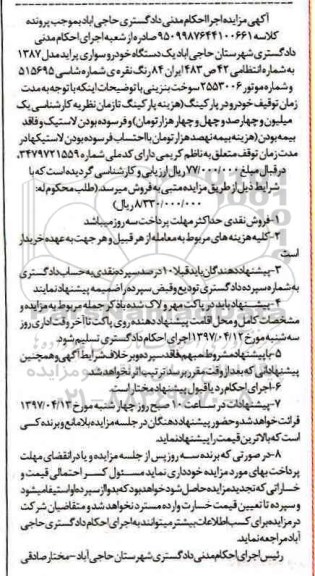 آگهی مزایده اجرا احکام مدنی دادگستری حاجی آباد بموجب پرونده
کلاسه ۹۵۰۹۹۸۷۶۴۴۱۰۰۶۶۱ صادره از شعبه اجرای احکام مدنی
دادگستری شهرستان حاجی آباد یک دستگاه خودرو سواری پراید مدل ۱۳۸۷
به شماره انتظامی ۴۲ ص ۴۸۳ ایران ۸۴ رنگ نقره ی شماره شاسی ۵۱۵۶۹۵
و شماره موتور ۲۵۵۳۰۰۶ سوخت بنزینی با توضیحات اینکه با توجه به مدت
زمان توقیف خودرو در پارکینگ (هزینه پارکینگ تا زمان نظریه کارشناسی یک
میلیون و چهارصد و چهل و چهار هزار تومان) و فرسوده بودن لاستیک و فاقد
بیمه بودن (هزینه بیمه نهصد هزار تومان با احتساب فرسوده بودن لاستیکها در
مدت زمان توقف متعلق به ناظم کریمی دارای کد ملی شماره ۳۴۷۹۷۲۱۵۵۹
در قبال مبلغ ۷۷/۰۰۰/۰۰۰ ریال ارزیابی و کارشناسی گردیده است که با
شرایط ذیل از طریق مزایده مبتی به فروش میرسد. (طلب محکوم له:
۸/۳۳۰/۰۰۰/۰۰۰ ریال)
۱-فروش نقدی حداکثر مهلت پرداخت سه روز میباشد
۲-کلیه هزینه های مربوط به معامله از هر قبیل و هر جهت به عهده خریدار
است
۳-پیشنهاد دهندگان باید قبلا ۱۰ درصد سپرده نقدی به حساب دادگستری
به شماره سپرده دادگستری تودیع و قبض سپرده را ضمیمه پیشنهاد نمایند
۴-پیشنهاد باید در پاکت مهر و لاک شده با ذکر جمله مربوط به مزایده و
مشخصات کامل و محل اقامت پیشنهاد دهنده روی پاکت تا آخر وقت اداری روز
سه شنبه مورخ ۱۳۹۷/۰۴/۱۲ اجرای احکام دادگستری تسلیم شود
۵-با پیشنهاد مشروط مبهم فاقد سپرده و بر خلاف شرایط آگهی و همچنین
پیشنهاداتی که بعد از وقت مقرر برسد ترتیب اثر نخواهد شد
۶-اجرای احکام رد یا قبول پیشنهاد مختار است.
۷-پیشنهادات در ساعت ۱۰ صبح روز چهارشنبه مورخ ۱۳۹۷/۰۴/۱۳
قرائت خواهد شد و حضور پیشنهاد دهنگان در جلسه مزایده بلامانع و برنده کسی
است که بالاترین قیمت را پیشنهاد نماید
۸-در صورتی که برنده سه روز پس از جلسه مزایده و یا در انقضای مهلت
پرداخت بهای مورد مزایده خودداری نماید مسئول کسر احتمالی قیمت و
خساراتی که تجدید مزایده حاصل شود خواهد بود که بدوا از سپرده او استیفا میشود
و سپرده تا تعیین قیمت خسارت وارده مسترد نخواهد شد و متقاضیان شرکت
در مزایده برای کسب اطلاعات بیشتر میتوانند به اجرای احکام دادگستری حاجی
آباد مراجعه نماید
رئیس اجرای احکام مدنی دادگستری شهرستان حاجی آباد - مختار صادقی